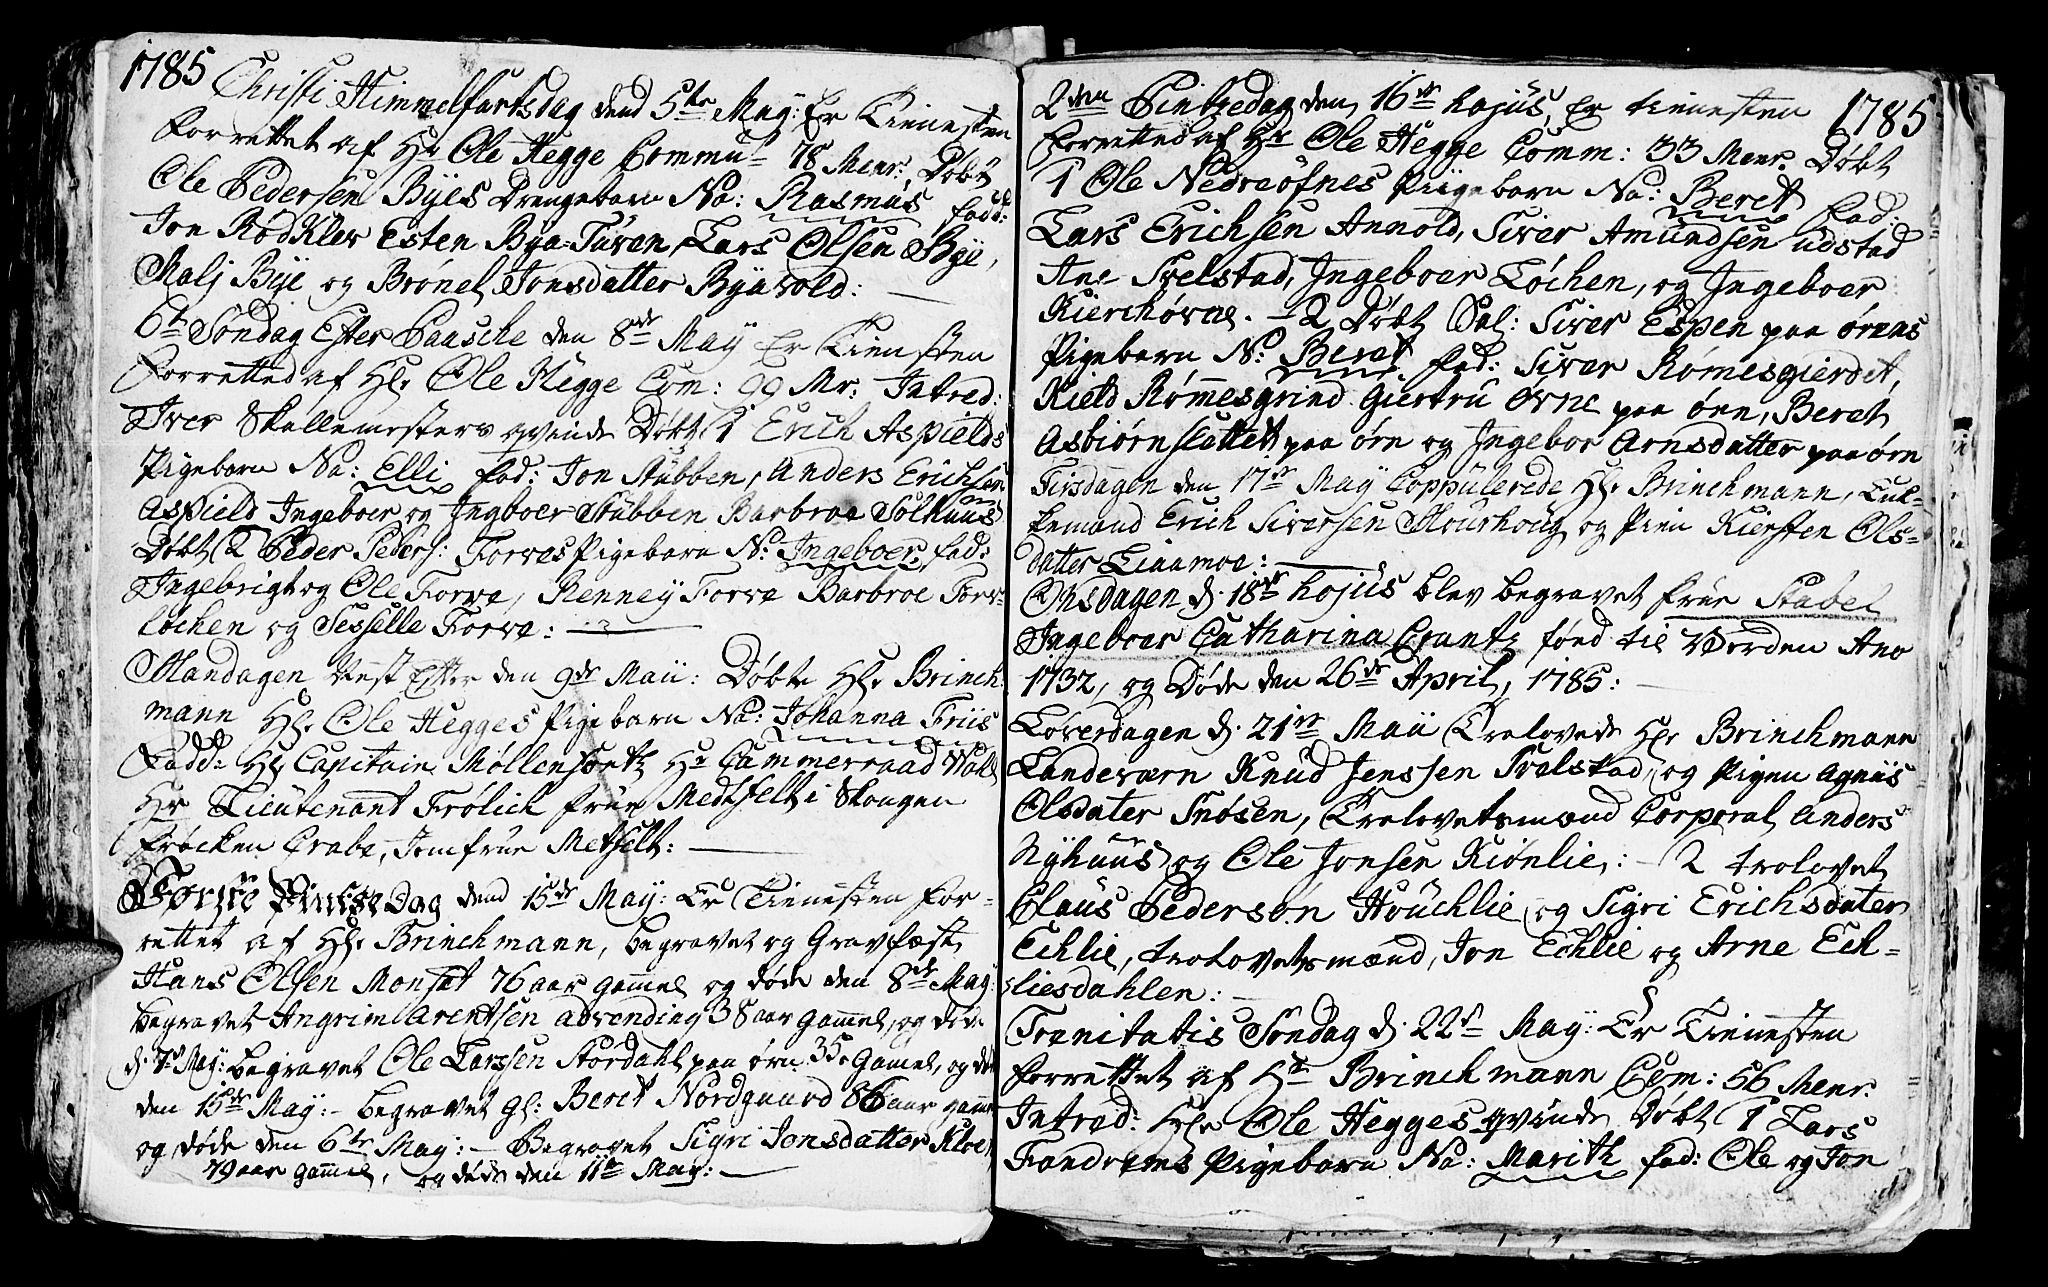 1785
Christi Himmelfartsdag dend 5te May: Er Tienesten
forrettet af Hr Ole Hegge Commu: 78 Menr: Døbt
Ole Pedersen Byes Drengebarn Na: Rasmus fadd:
Jon Rødkløv Esten Bya-Tuven, Lars Olsen Bye,
Malj Bye og Brønel Jonsdatter Byavold:
6te Søndag Efter Paasche den 8de May Er Tiensten
forretted af Hr. Ole Hegge Com: 99 Mr: Introd:
Iver Skallemesters qvinde Døbt 1 Erich Aspields
Pigebarn Na: Elli fad: Jon Stubben, Anders Erichsen
Aspield Ingeboer og Ingboer Stubben Barbroe Solhuus
Døbt 2 Peder Peders: Forves Pigebarn N: Ingeboer, fad:
Ingebrigt og Ole Forve, Renney Forve Barbroe Forv-
løchen og Sesselle Forve:
Mandagen Nest Efter den 9de Maii: Døbte Hr. Brinch
mann Hr. Ole Hegges Pigebarn Na: Johanna Friis
Fadd: Hr Capitain Møllensoth Hr Cammerraad Wold
Hr Lieutenant Frølich frue Mechfelt i Skougen
frøcken Crabe, Jomfrue Metzelt:
Første Pintse Dag dend 15de May: Er Tienesten for-
rettet af Hr. Brinchmann, begravet og Gravfæst
Hans Olsen Monset 76 aar gamel og døde den 8de May:
begravet Angrim Arentsen advending 38 aar gammel, og døde
d. 7de May: begravet Ole Larssen Stordahl paa ørn 35. gamel, og død
den 15de May: - begravet gl: Beret Nordguard 86 aar gamel
og døde den 6te May: - Begravet Sigri Jonsdatter Kloe
79 aar gamel, og døde den 11te May:
1785
2den Pintzedag den 16de hujus, Er tienesten
forretted af Hr Ole Hegge Comm: 33 Menr. Døbt
1 Ole Nedreøfnes Piigebarn Na: Beret fad:
Lars Erichsen Annold, Siver Amundsen udstad
Ane Svelstad, Ingeboer Løchen, og Ingeboer
Kierchøvne. - 2 Døbt Sal: Siver Espen paa ørens
Pigebarn N: Beret fad: Siver Rømesgierdet,
Kield Rømmesgrind Giertru Øvne paa ørn, Beret
Asbiørnslettet paa ørn og Ingebor Arnsdatter paa ørn
Tirsdagen den 17de May Coppulerede Hr. Brinchmann, Euk-
kemand Erich Siversen Mourhoug og Pien Kiersten Ols-
datter Liaamoe:
Onsdagen d. 18de hujus blev begravet frue Stabel
Ingeboer Catharina Crantz fød til Verden Ano
1732, og Døde den 26de April, 1785:
Løverdagen d. 21de Maii Trolovede Hr Brinchmann
Landeværn Knud Jenssen Svelstad, og Pigen Agniis
Olsdater Snøsen, Trolovetsmænd Corporal Anders
Nyhuus og Ole Jonsen Kiønlie: - 2 trolovet
Claus Pedersøn Houchlie og Sigri Erichsdater
Echlie, trolovetsmænd, Jon Echlie og Arne Ech-
liesdahlen:
Trenitatis Søndag d. 22de May: Er Tienesten
forrettet af Hr Brinchmann Com: 56 Menr.
Introd: Hr Ole Hegges qvinde Døbt 1 Lars
Fondrems Pigebarn Na: Marith fad: Ole og Jon